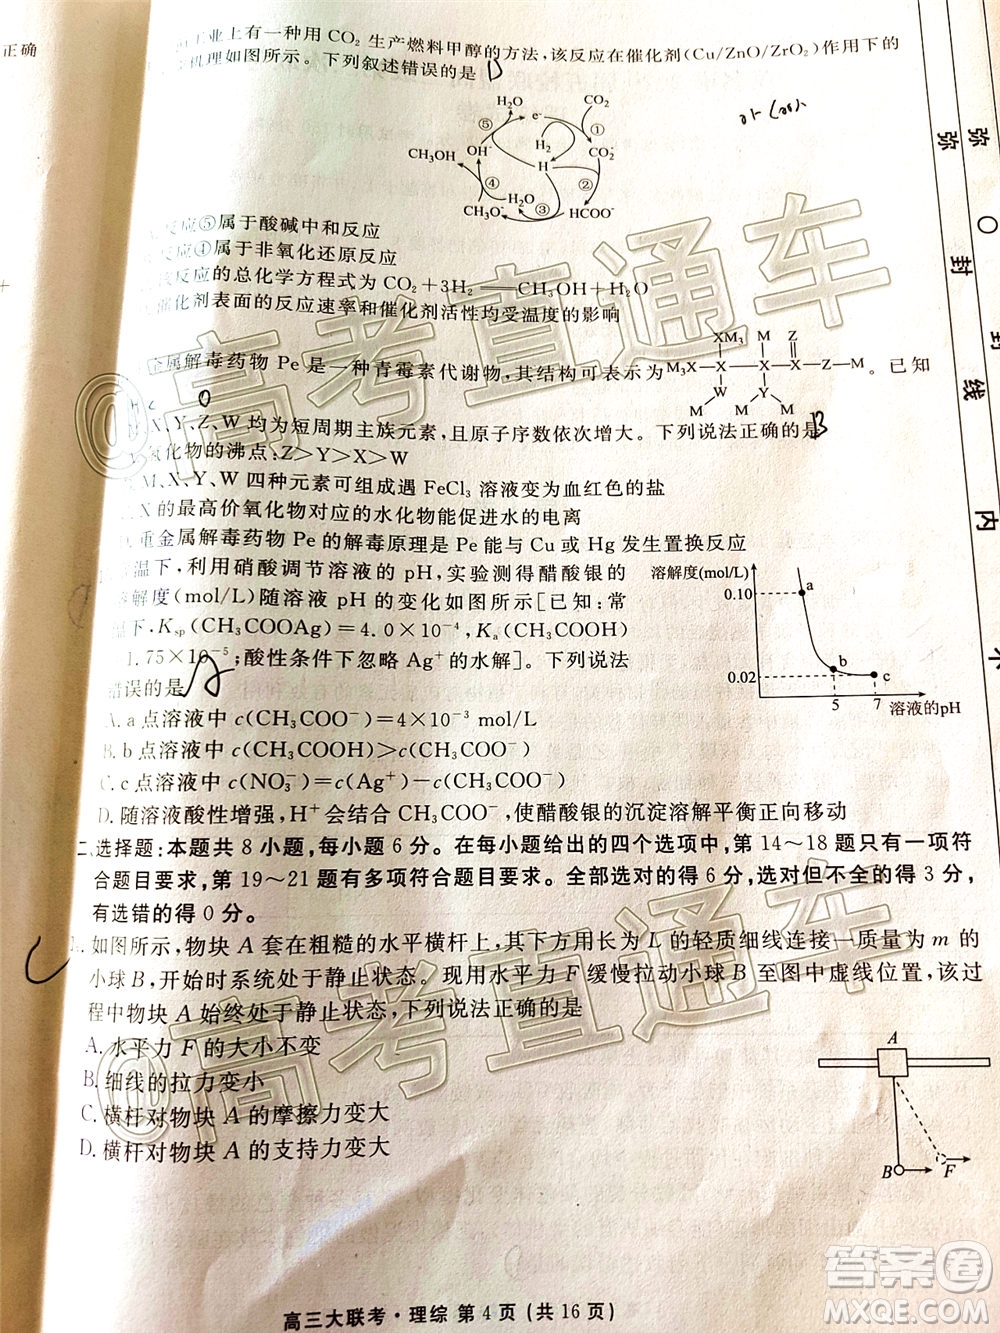 正确
工业上有一种用 CO₂ 生产燃料甲醇的方法,该反应在催化剂(Cu/ZnO/ZrO₂)作用下的
机理如图所示。下列叙述错误的是 D
H₂O
e⁻
CO₂
⑤
①
OH⁻
H₂
CO₂⁻
CH₃OH
H
②
④
H₂O
③
CH₃O⁻
HCOO⁻
反应⑤属于酸碱中和反应
反应④属于非氧化还原反应
该反应的总化学方程式为 CO₂+3H₂══CH₃OH+H₂O
催化剂表面的反应速率和催化剂活性均受温度的影响
金属解毒药物 Pe 是一种青霉素代谢物,其结构可表示为
XM₃ M Z
M₃X—X—X—X—X—Z—M
W Y
M M M
。已知
X、Y、Z、W 均为短周期主族元素,且原子序数依次增大。下列说法正确的是 B
氢化物的沸点:Z>Y>X>W
M、X、Y、W 四种元素可组成遇 FeCl₃ 溶液变为血红色的盐
X 的最高价氧化物对应的水化物能促进水的电离
重金属解毒药物 Pe 的解毒原理是 Pe 能与 Cu 或 Hg 发生置换反应
温下,利用硝酸调节溶液的 pH,实验测得醋酸银的
溶解度(mol/L)随溶液 pH 的变化如图所示[已知:常
温下,Kₛₚ(CH₃COOAg)=4.0×10⁻⁴,Kₐ(CH₃COOH)
1.75×10⁻⁵;酸性条件下忽略 Ag⁺ 的水解]。下列说法
错误的是
溶解度(mol/L)
0.10
a
b
c
0.02
5
7
溶液的pH
A. a 点溶液中 c(CH₃COO⁻)=4×10⁻³ mol/L
B. b 点溶液中 c(CH₃COOH)>c(CH₃COO⁻)
C. c 点溶液中 c(NO₃⁻)=c(Ag⁺)-c(CH₃COO⁻)
D. 随溶液酸性增强,H⁺ 会结合 CH₃COO⁻,使醋酸银的沉淀溶解平衡正向移动
二、选择题:本题共 8 小题,每小题 6 分。在每小题给出的四个选项中,第 14～18 题只有一项符
合题目要求,第 19～21 题有多项符合题目要求。全部选对的得 6 分,选对但不全的得 3 分,
有选错的得 0 分。
如图所示,物块 A 套在粗糙的水平横杆上,其下方用长为 L 的轻质细线连接一质量为 m 的
小球 B,开始时系统处于静止状态。现用水平力 F 缓慢拉动小球 B 至图中虚线位置,该过
程中物块 A 始终处于静止状态,下列说法正确的是
A. 水平力 F 的大小不变
B. 细线的拉力变小
C. 横杆对物块 A 的摩擦力变大
D. 横杆对物块 A 的支持力变大
A
B
F
高三大联考·理综 第 4 页(共 16 页)
弥
封
线
弥
封
线
内
不
@高考直通车
@高考直通车
答案圈
MXQE.COM